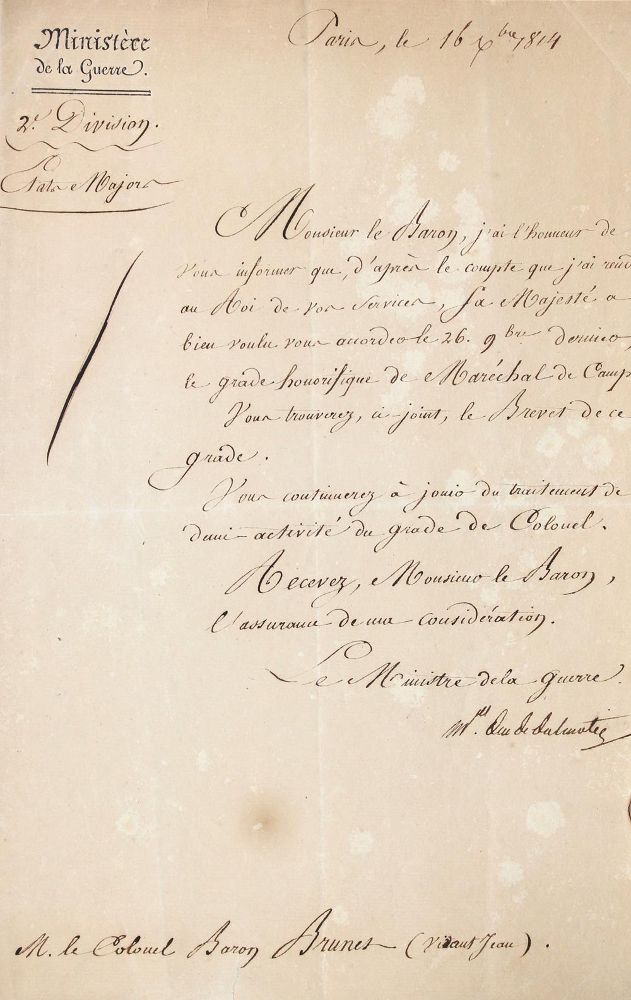 Ministère
de la Guerre.
2.e Division.
Etats Majors
Paris, le 16 Xbre 1814
Monsieur le Baron, j'ai l'honneur de
vous informer que, d'après le compte que j'ai rend
au Roi de vos services, Sa Majesté a
bien voulu vous accorder le 26. 9bre dernier,
le grade honorifique de Maréchal de Camp
Vous trouverez, ci-joint, le Brevet de ce
grade.
Vous continuerez à jouir du traitement de
demi-activité du grade de Colonel.
Recevez, Monsieur le Baron,
l'assurance de ma considération.
Le Ministre de la guerre.
Mal. Duc de Dalmatie
M. le Colonel Baron Brunet (Jean).